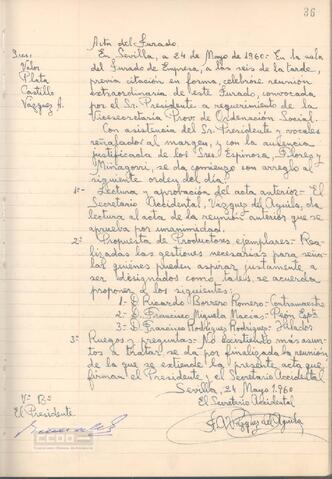 36
Acta del Jurado
Sres:
Valor
Plata
Castillo
Vázquez A.
En Sevilla, a 24 de Mayo de 1960: En la sala
del Jurado de Empresa, a las seis de la tarde,
previa citación en forma, celebróse reunión
extraordinaria de este Jurado, convocada
por el Sr. Presidente a requerimiento de la
Vicesecretaria Prov. de Ordenación Social.
Con asistencia del Sr. Presidente y vocales
reñalador al margen, y con la ausencia
justificada de los Sres Espinosa, Flores y
Minagorri, se da comienzo con arreglo al
siguiente orden del día:
1º- Lectura y aprobación del acta anterior- El
Secretario Accidental, Vázquez del Aguila, da
lectura al acta de la reunión anterior que se
aprueba por unanimidad.
2º- Propuesta de Productores ejemplares- Rea-
lizadas las gestiones necesarias para seña-
lar quienes pueden aspirar justamente a
ser designados como tales, se acuerda
proponer a los siguientes:
1- D. Ricardo Borrero Romero- Contramaestre
2- D. Francisco Miguala Macías- Peón Espª
3- D. Francisco Rodríguez Rodríguez- Hilados
3º- Ruegos y preguntas- No existiendo más asun-
tos a tratar, se da por finalizada la reunión
de la que se extiende la presente acta que
firman el Presidente y el Secretario Accidental
Sevilla, 24 Mayo 1.960
Vº Bº
El Presidente
El Secretario Accidental
F. Vázquez del Aguila
CCOO